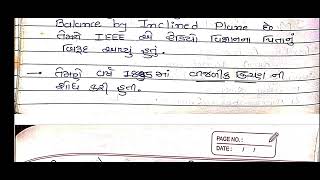 Balance by Inclined Plane હે
તેમણે IEEE એ રેડિયો વિજ્ઞાનના પિતાનું
બિરુદ આપ્યું હતું.
→ તેમણે વર્ષ માં વીજળીક કિરણ ની
શોધ કરી હતી.
PAGE NO.:
DATE: / /